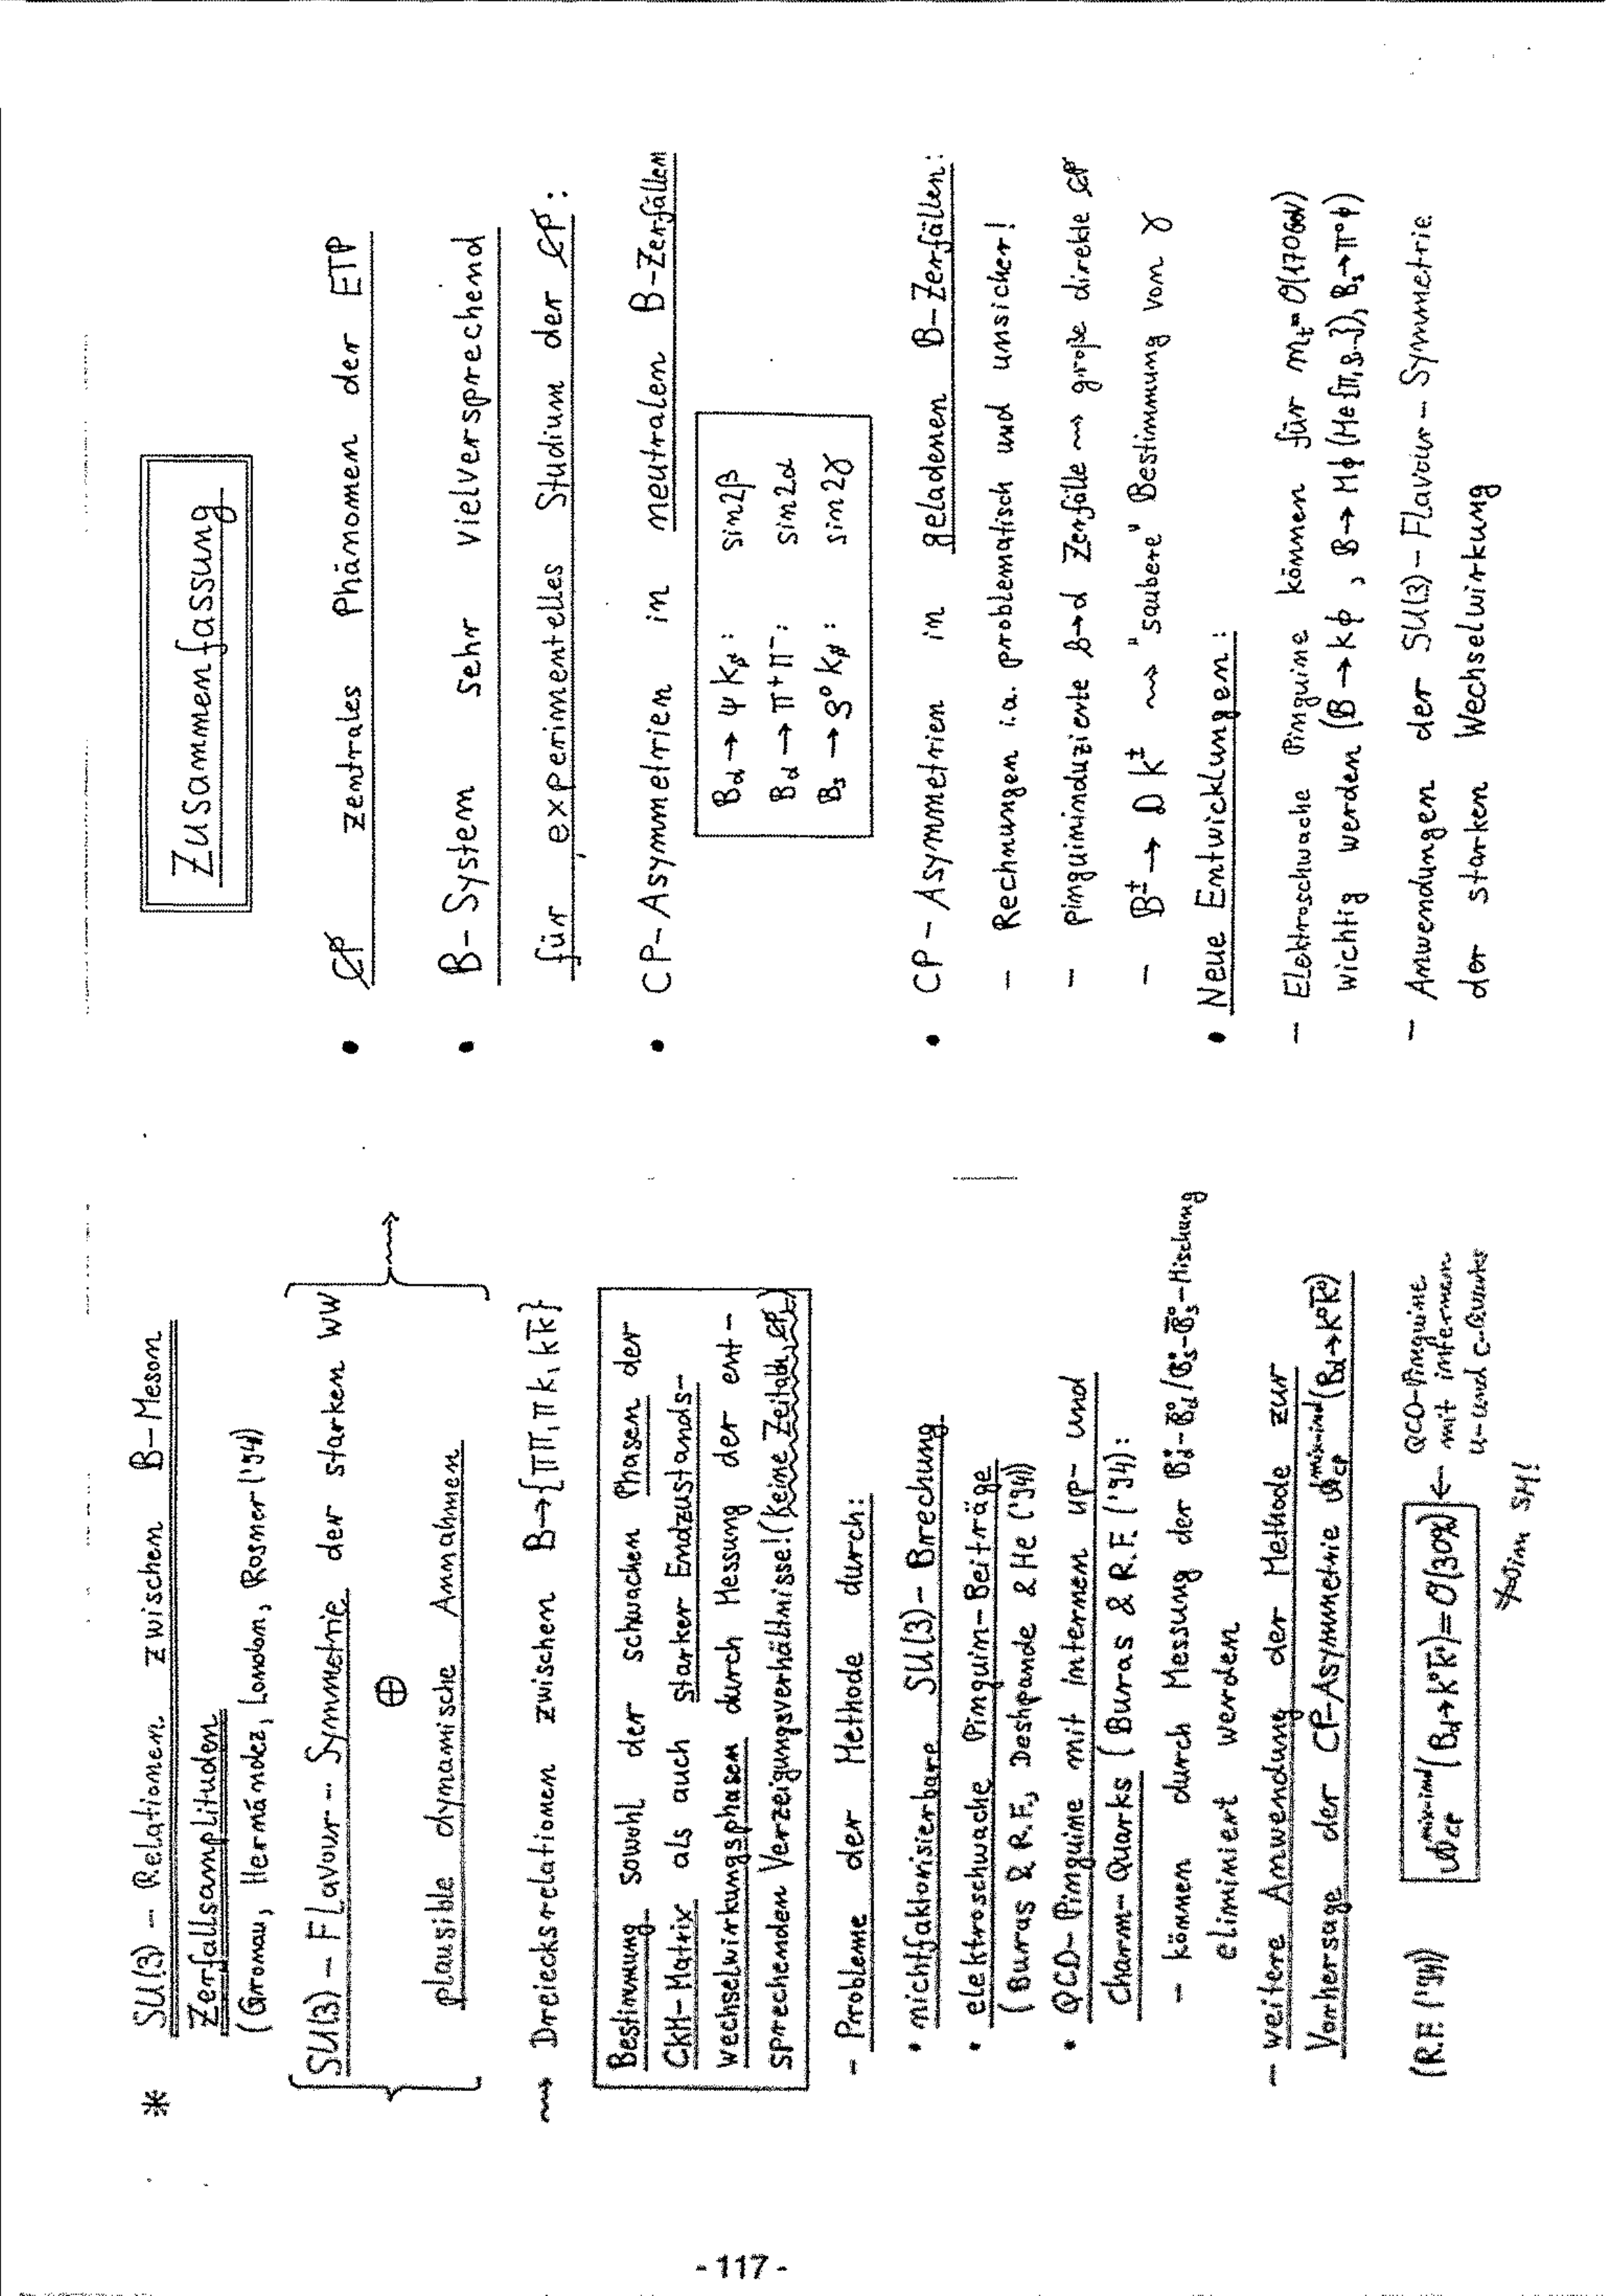 * SU(3) - Relationen zwischen B-Meson
Zerfallsamplituden
(Gronau, Hernández, London, Rosner ('94))
SU(3) - Flavour - Symmetrie der starken WW
⊕
plausible dynamische Annahmen
⇝ Dreiecksrelationen zwischen B→{ππ, πK, KK̄}
Bestimmung sowohl der schwachen Phasen der
CKM-Matrix als auch starker Endzustands-
wechselwirkungsphasen durch Messung der ent-
sprechenden Verzeigungsverhältnisse! (Keine Zeitabh. C̸P̸)
- Probleme der Methode durch:
• nichtfaktorisierbare SU(3)-Brechung
• elektroschwache Pinguin-Beiträge
(Buras & R.F., Deshpande & He ('94))
• QCD-Pinguine mit internen up- und
charm-Quarks (Buras & R.F. ('94):
- können durch Messung der B°d-B̄°d/B°s-B̄°s-Mischung
eliminiert werden
- weitere Anwendung der Methode zur
Vorhersage der CP-Asymmetrie 𝒜 mix-ind CP (Bd→K°K̄°)
(R.F. ('94)) 𝒜 mix-ind CP (Bd→K°K̄°) = O(30%) ← QCD-Pinguine
mit internen
u- und c-Quarks
im SM!
Zusammenfassung
• C̸P̸ zentrales Phänomen der ETP
• B-System sehr vielversprechend
für experimentelles Studium der C̸P̸:
• CP-Asymmetrien in neutralen B-Zerfällen
Bd → ψ Ks: sin2β
Bd → π⁺π⁻: sin2α
Bs → ρ° Ks: sin2γ
• CP-Asymmetrien in geladenen B-Zerfällen:
- Rechnungen i.a. problematisch und unsicher!
- Pinguininduzierte b→d Zerfälle ⇝ große direkte C̸P̸
- B± → D K± ⇝ "saubere" Bestimmung von γ
• Neue Entwicklungen:
- Elektroschwache Pinguine können für mt = O(170GeV)
wichtig werden (B→Kϕ, B→Mϕ (Mє{π,ρ..}), Bs→π°ϕ)
- Anwendungen der SU(3)-Flavour-Symmetrie
der starken Wechselwirkung
- 117 -